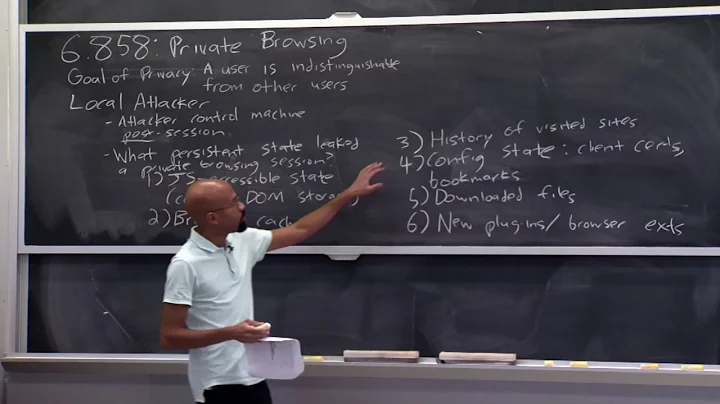 6.858: Private Browsing
Goal of Privacy: A user is indistinguishable
from other users
Local Attacker
- Attacker control machine
post-session
- What persistent state leaked
a private browsing session?
1) JS accessible state
DOM storage)
2)
cache
3) History of visited sites
4) Config state: client certs,
bookmarks
5) Downloaded files
6) New plugins/browser exts